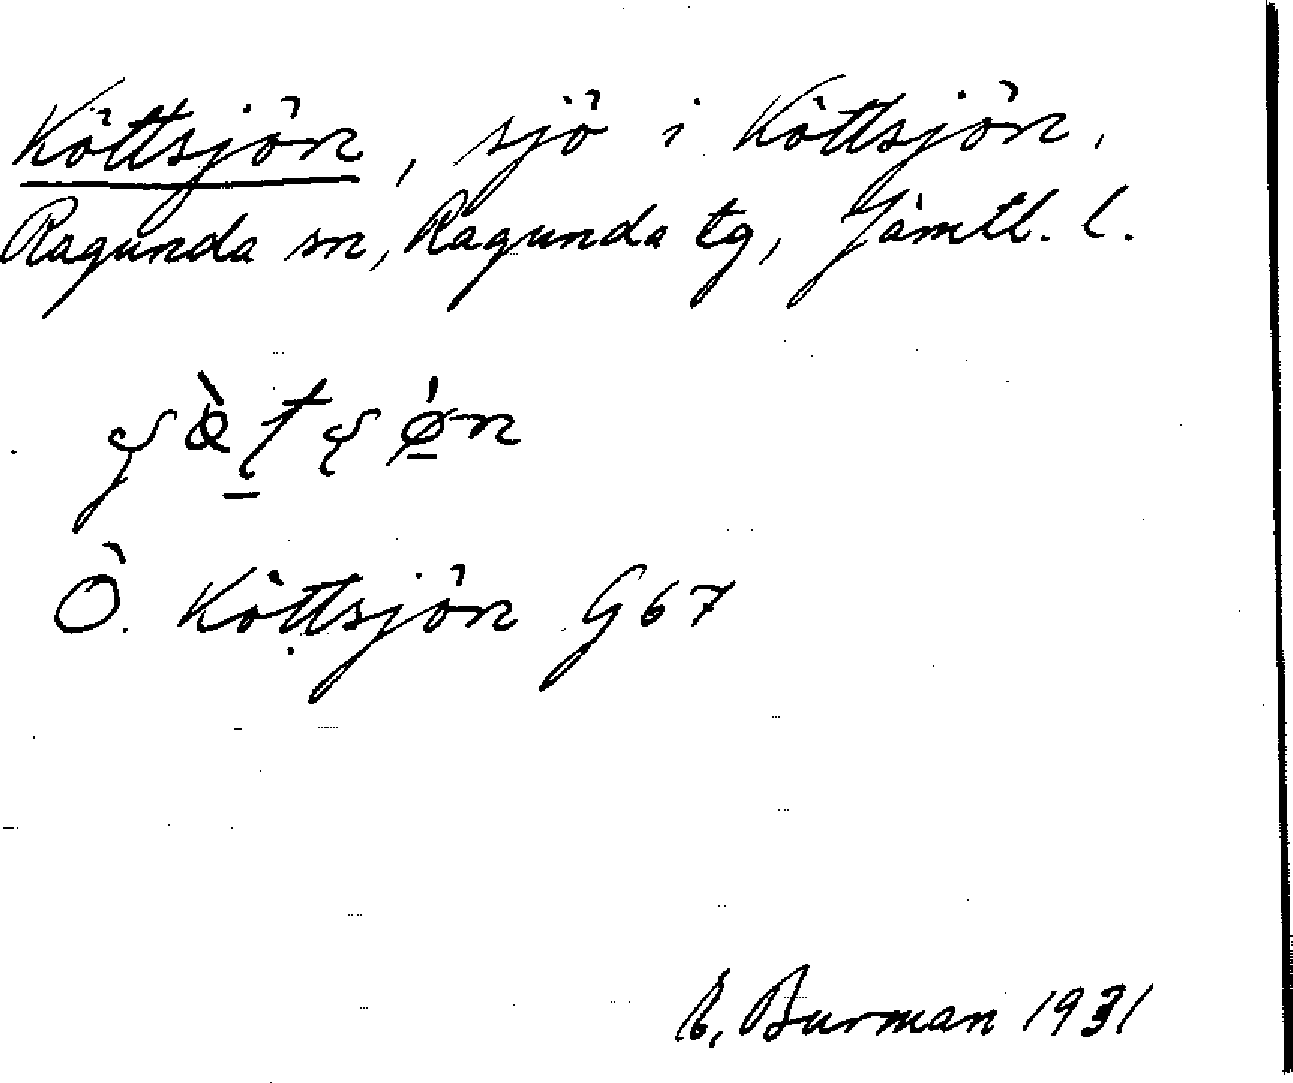 Köttsjön, sjö i Köttsjön,
Ragunda sn, Ragunda tg, Jämtl. l.
Ö. Köttsjön G67
E. Burman 1931